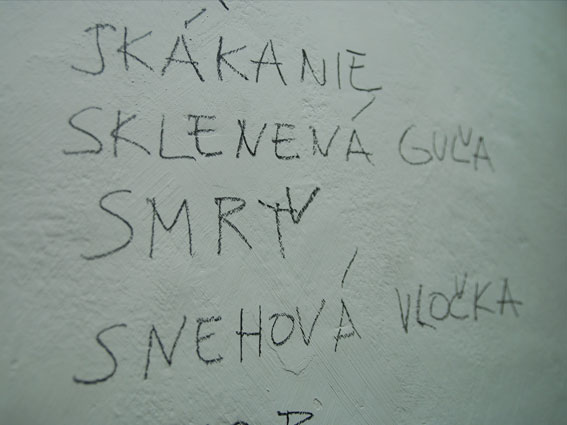 SKÁKANIE
SKLENENÁ GUĽA
SMRŤ
SNEHOVÁ VLOČKA